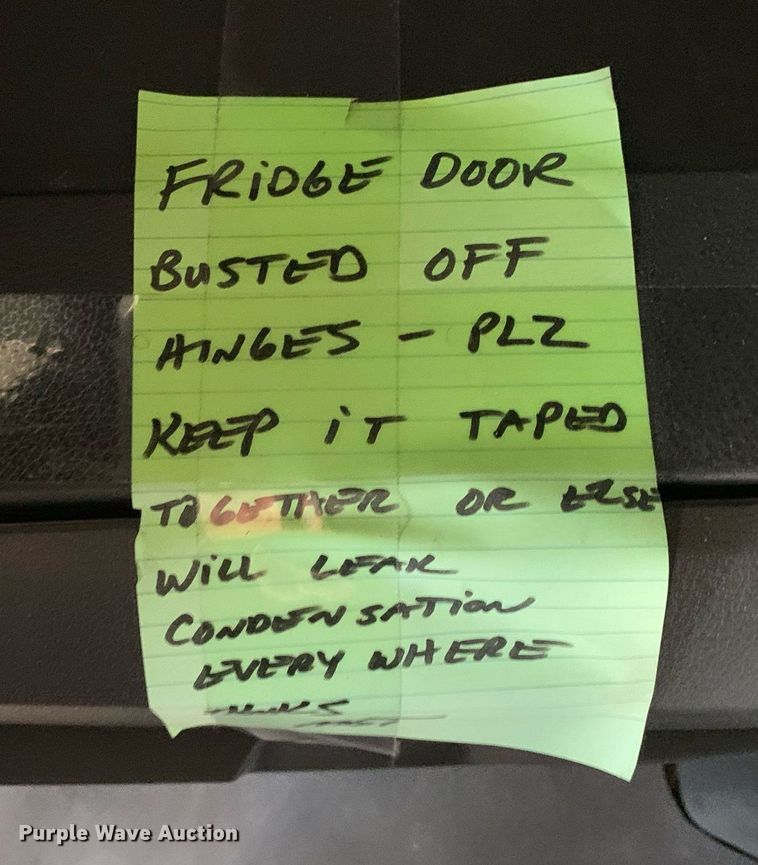 FRIDGE DOOR
BUSTED OFF
HINGES - PLZ
KEEP iT TAPED
TOGETHER OR ELSE
WILL LEAK
CONDENSATION
EVERYWHERE
Purple Wave Auction